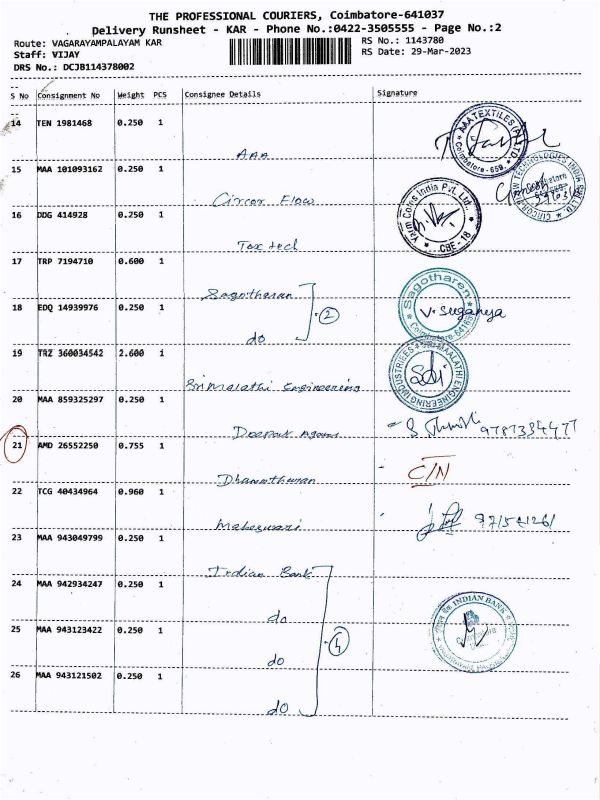 THE PROFESSIONAL COURIERS, Coimbatore-641037
Delivery Runsheet - KAR - Phone No.:0422-3505555 - Page No.:2
Route: VAGARAYAMPALAYAM KAR
RS No.: 1143780
Staff: VIJAY
RS Date: 29-Mar-2023
DRS No.: DCJB114378002
S No Consignment No Weight PCS Consignee Details Signature
14 TEN 1981468 0.250 1
AAA
AAA TEXTILES (P) LTD.
Coimbatore - 659.
15 MAA 101093162 0.250 1
Circor Flow
16 DDG 414928 0.250 1
Tex tech
Yarn Cones India Pvt. Ltd.
CBE - 18
17 TRP 7194710 0.600 1
Sagotharan
Sagotharen
18 EDQ 14939976 0.250 1
do
2
V. Suganya
19 TRZ 360034542 2.600 1
Sri Malathi Engineering
SRI MAALATHI ENGINEERING INDUSTRIEES
20 MAA 859325297 0.250 1
Deepak
9787334477
21 AMD 26552250 0.755 1
C/N
22 TCG 40434964 0.960 1
Maheswari
23 MAA 943049799 0.250 1
Indian Bank
24 MAA 942934247 0.250 1
do
4
INDIAN BANK
25 MAA 943123422 0.250 1
do
26 MAA 943121502 0.250 1
do